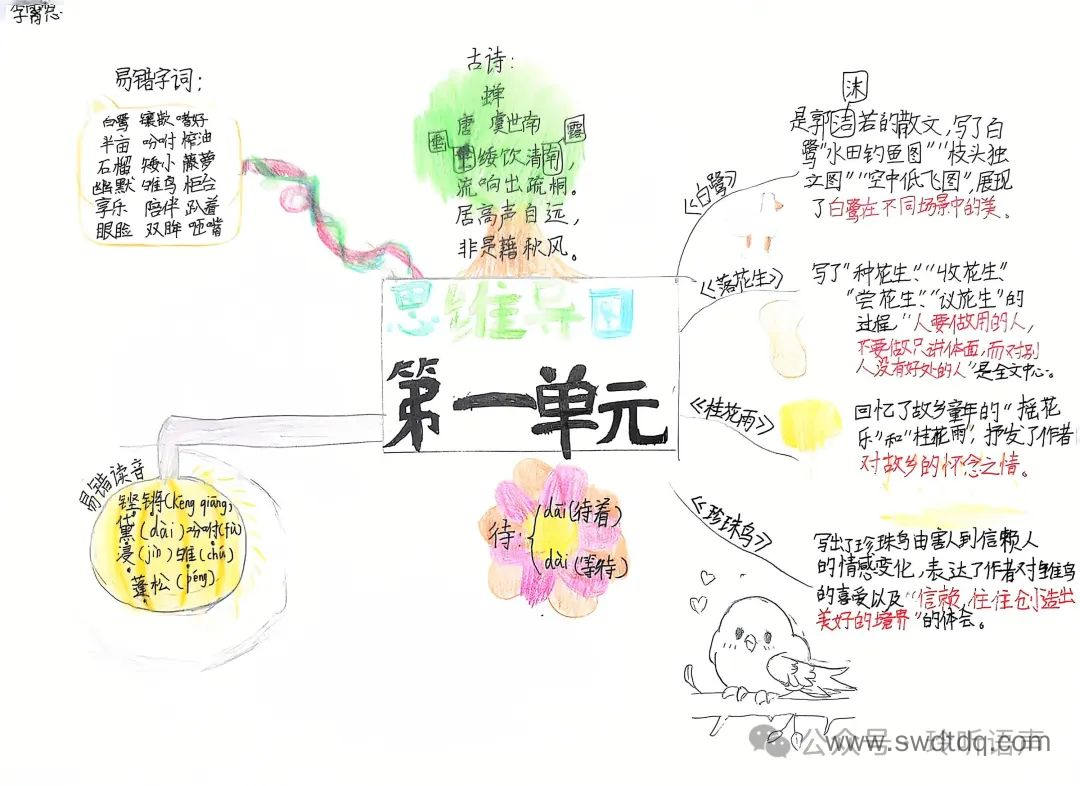 易错字词：
白鹭 镶嵌 嗜好
半亩 吩咐 榨油
石榴 矮小 藤萝
幽默 雏鸟 柜台
享乐 陪伴 趴着
眼睑 双眸 咂嘴
古诗：
蝉
唐 虞世南
垂 露
垂緌饮清南，
流响出疏桐。
居高声自远，
非是藉秋风。
思维导图
第一单元
易错读音
铿锵(kēng qiāng)
黛(dài) 吩咐(fù)
浸(jìn) 雏(chú)
蓬松(péng)
待：
dāi(待着)
dài(等待)
《白鹭》
沫
是郭沽若的散文，写了白
鹭“水田钓鱼图”“枝头独
立图”“空中低飞图”，展现
了白鹭在不同场景中的美。
《落花生》
写了“种花生”、“收花生”
“尝花生”、“议花生”的
过程，“人要做有用的人，
不要做只讲体面，而对别
人没有好处的人”是全文中心。
《桂花雨》
回忆了故乡童年的“摇花
乐”和“桂花雨”，抒发了作者
对故乡的怀念之情。
《珍珠鸟》
写出了珍珠鸟由害人到信赖人
的情感变化，表达了作者对雏鸟
的喜爱以及“信赖，往往创造出
美好的境界”的体会。
公众号 · 聆听语声
www.swdtdq.com